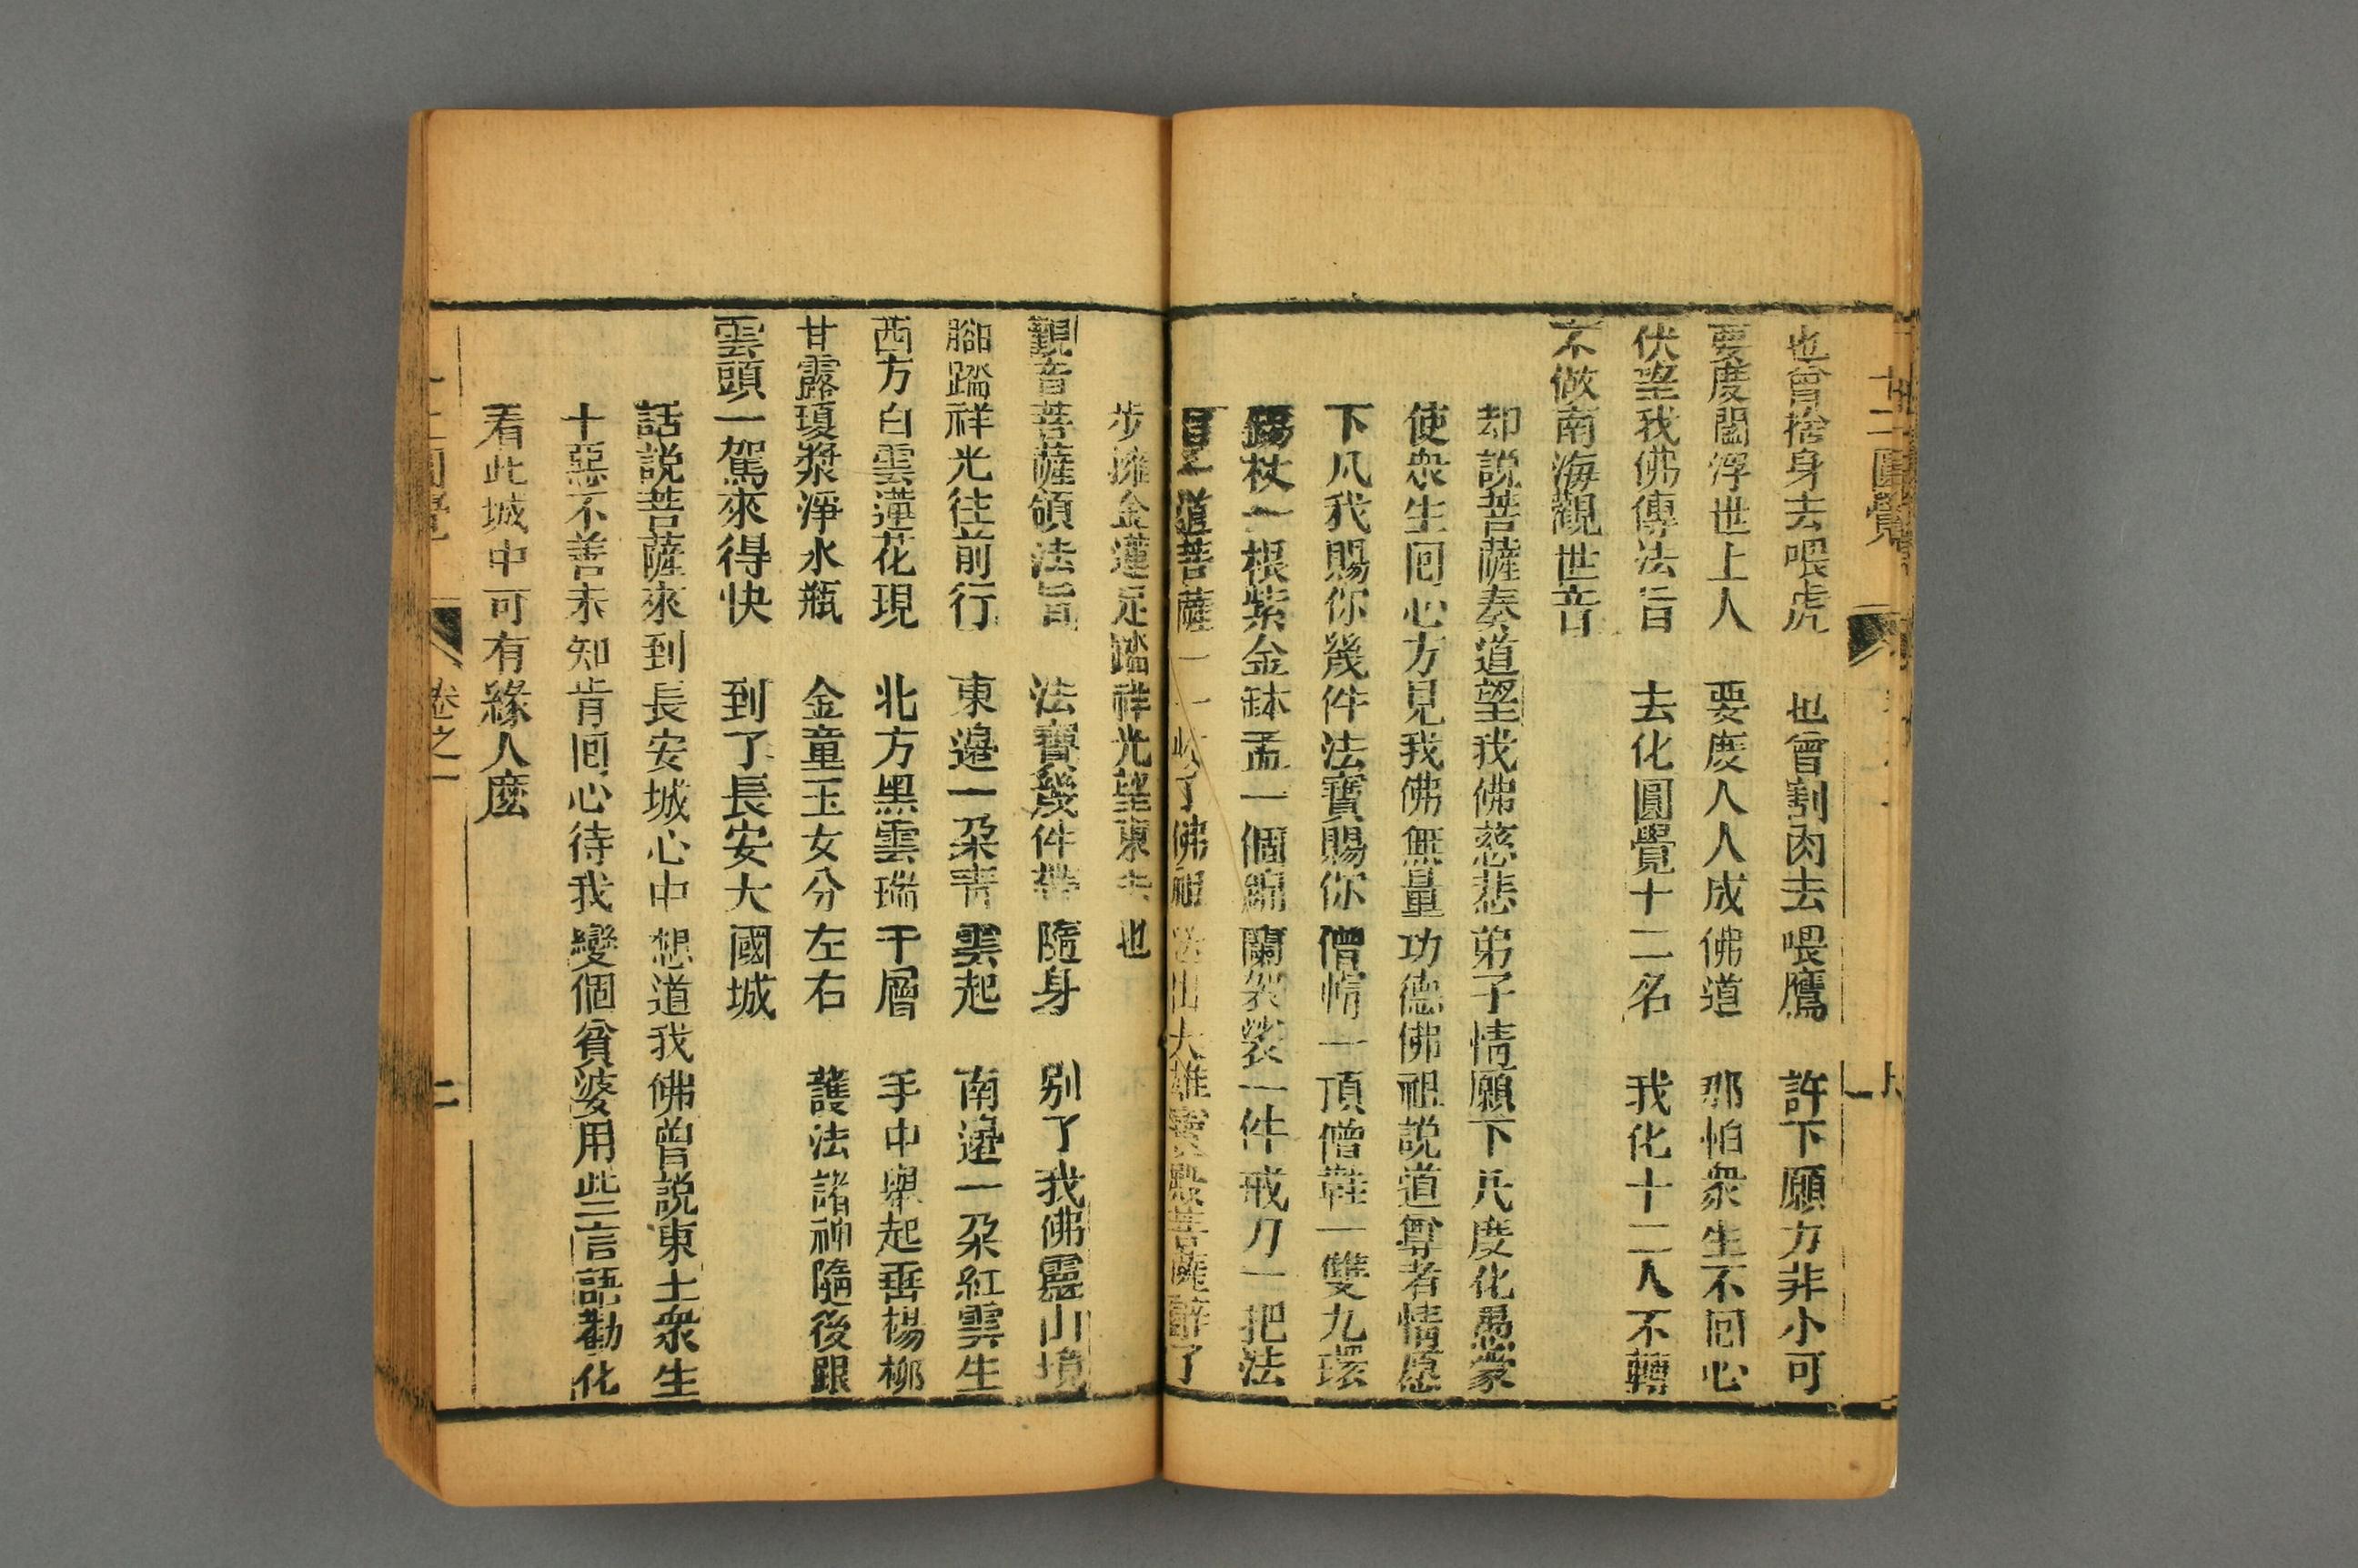 十二圓覺
也曾捨身去喂虎 也曾割肉去喂鷹 許下願力非小可
要度閻浮世上人 要度人人成佛道 那怕衆生不囘心
伏望我佛傳法旨 去化圓覺十二名 我化十二人不轉
不做南海觀世音
却説菩薩奏道望我佛慈悲弟子情願下凡度化愚蒙
使衆生囘心方見我佛無量功德佛祖説道尊者情愿
下凡我賜你幾件法寶賜你僧帽一頂僧鞋一雙九環
錫杖一根紫金鉢盂一個錦蘭袈裟一件戒刀一把法
旨一道菩薩一一收了佛祖送出大雄寶殿菩薩辭了
步擁金蓮足踏祥光望東去也
觀音菩薩領法旨 法寶幾件帶隨身 别了我佛靈山境
腳踏祥光往前行 東邉一朶青雲起 南邉一朶紅雲生
西方白雲蓮花現 北方黑雲瑞千層 手中舉起垂楊柳
甘露瓊漿淨水瓶 金童玉女分左右 護法諸神隨後跟
雲頭一駕來得快 到了長安大國城
話説菩薩來到長安城心中想道我佛曽説東土衆生
十惡不善未知肯囘心待我變個貧婆用些言語勸化
看此城中可有緣人麽
十二圓覺 卷之一 二